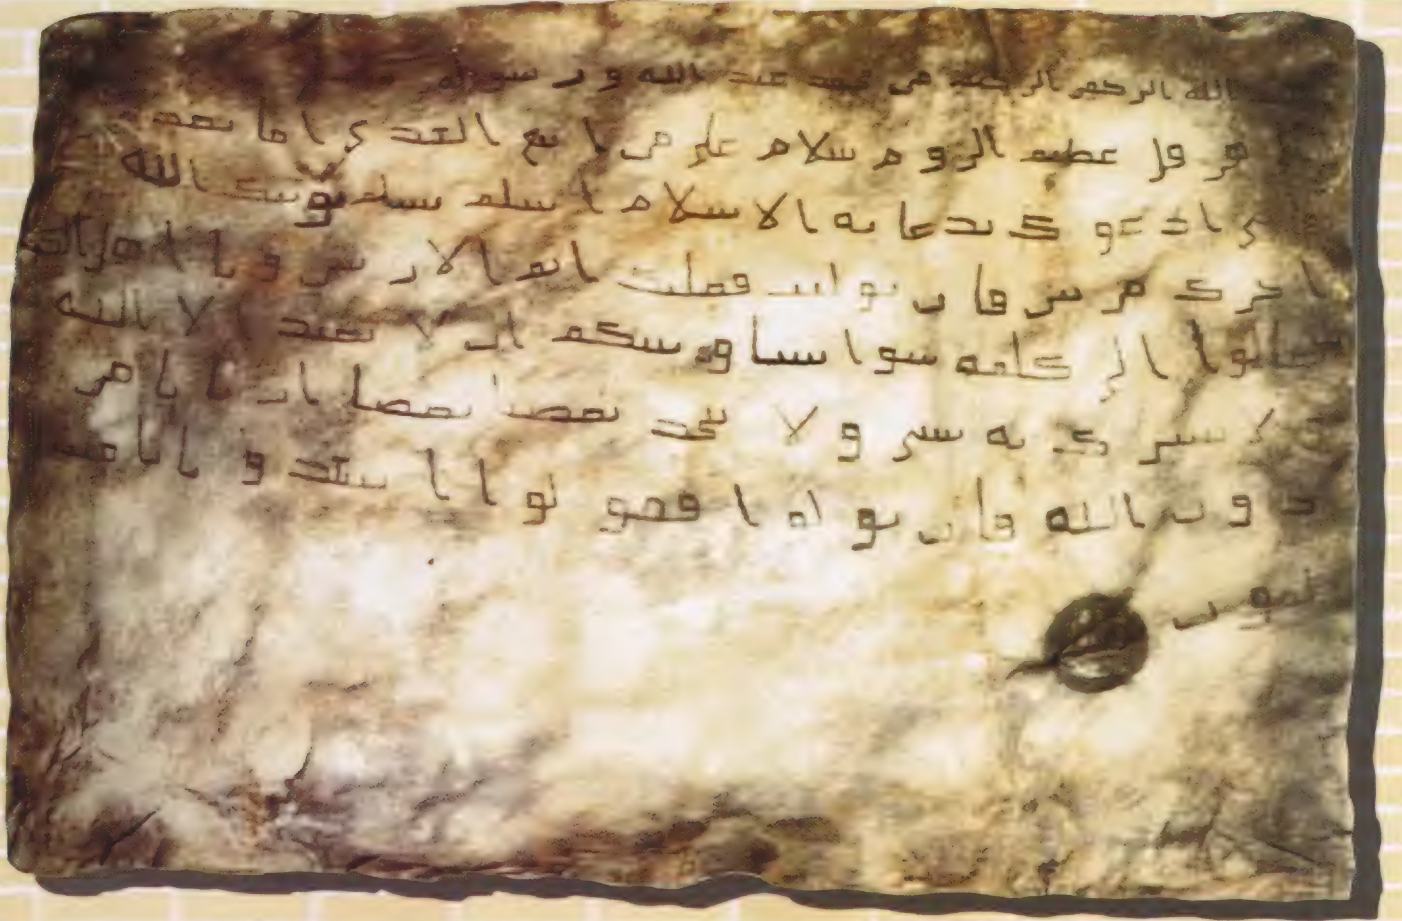 الله الرحمن الرحيم من محمد عبد الله ورسوله
هرقل عظيم الروم سلام على من اتبع الهدى اما بعد
ادعوك بدعايه الاسلام اسلم تسلم يوتك الله
اجرك مرتين فان توليت فعليك اثم الاريسين ويا اهل الكتب
تعالوا الى كلمه سوا بيننا وبينكم ان لا نعبد الا الله
ولا نشرك به شى ولا يتخذ بعضنا بعضا اربابا من
دون الله فان تولوا فقولوا اشهدوا بانا مسـ
ـلمون